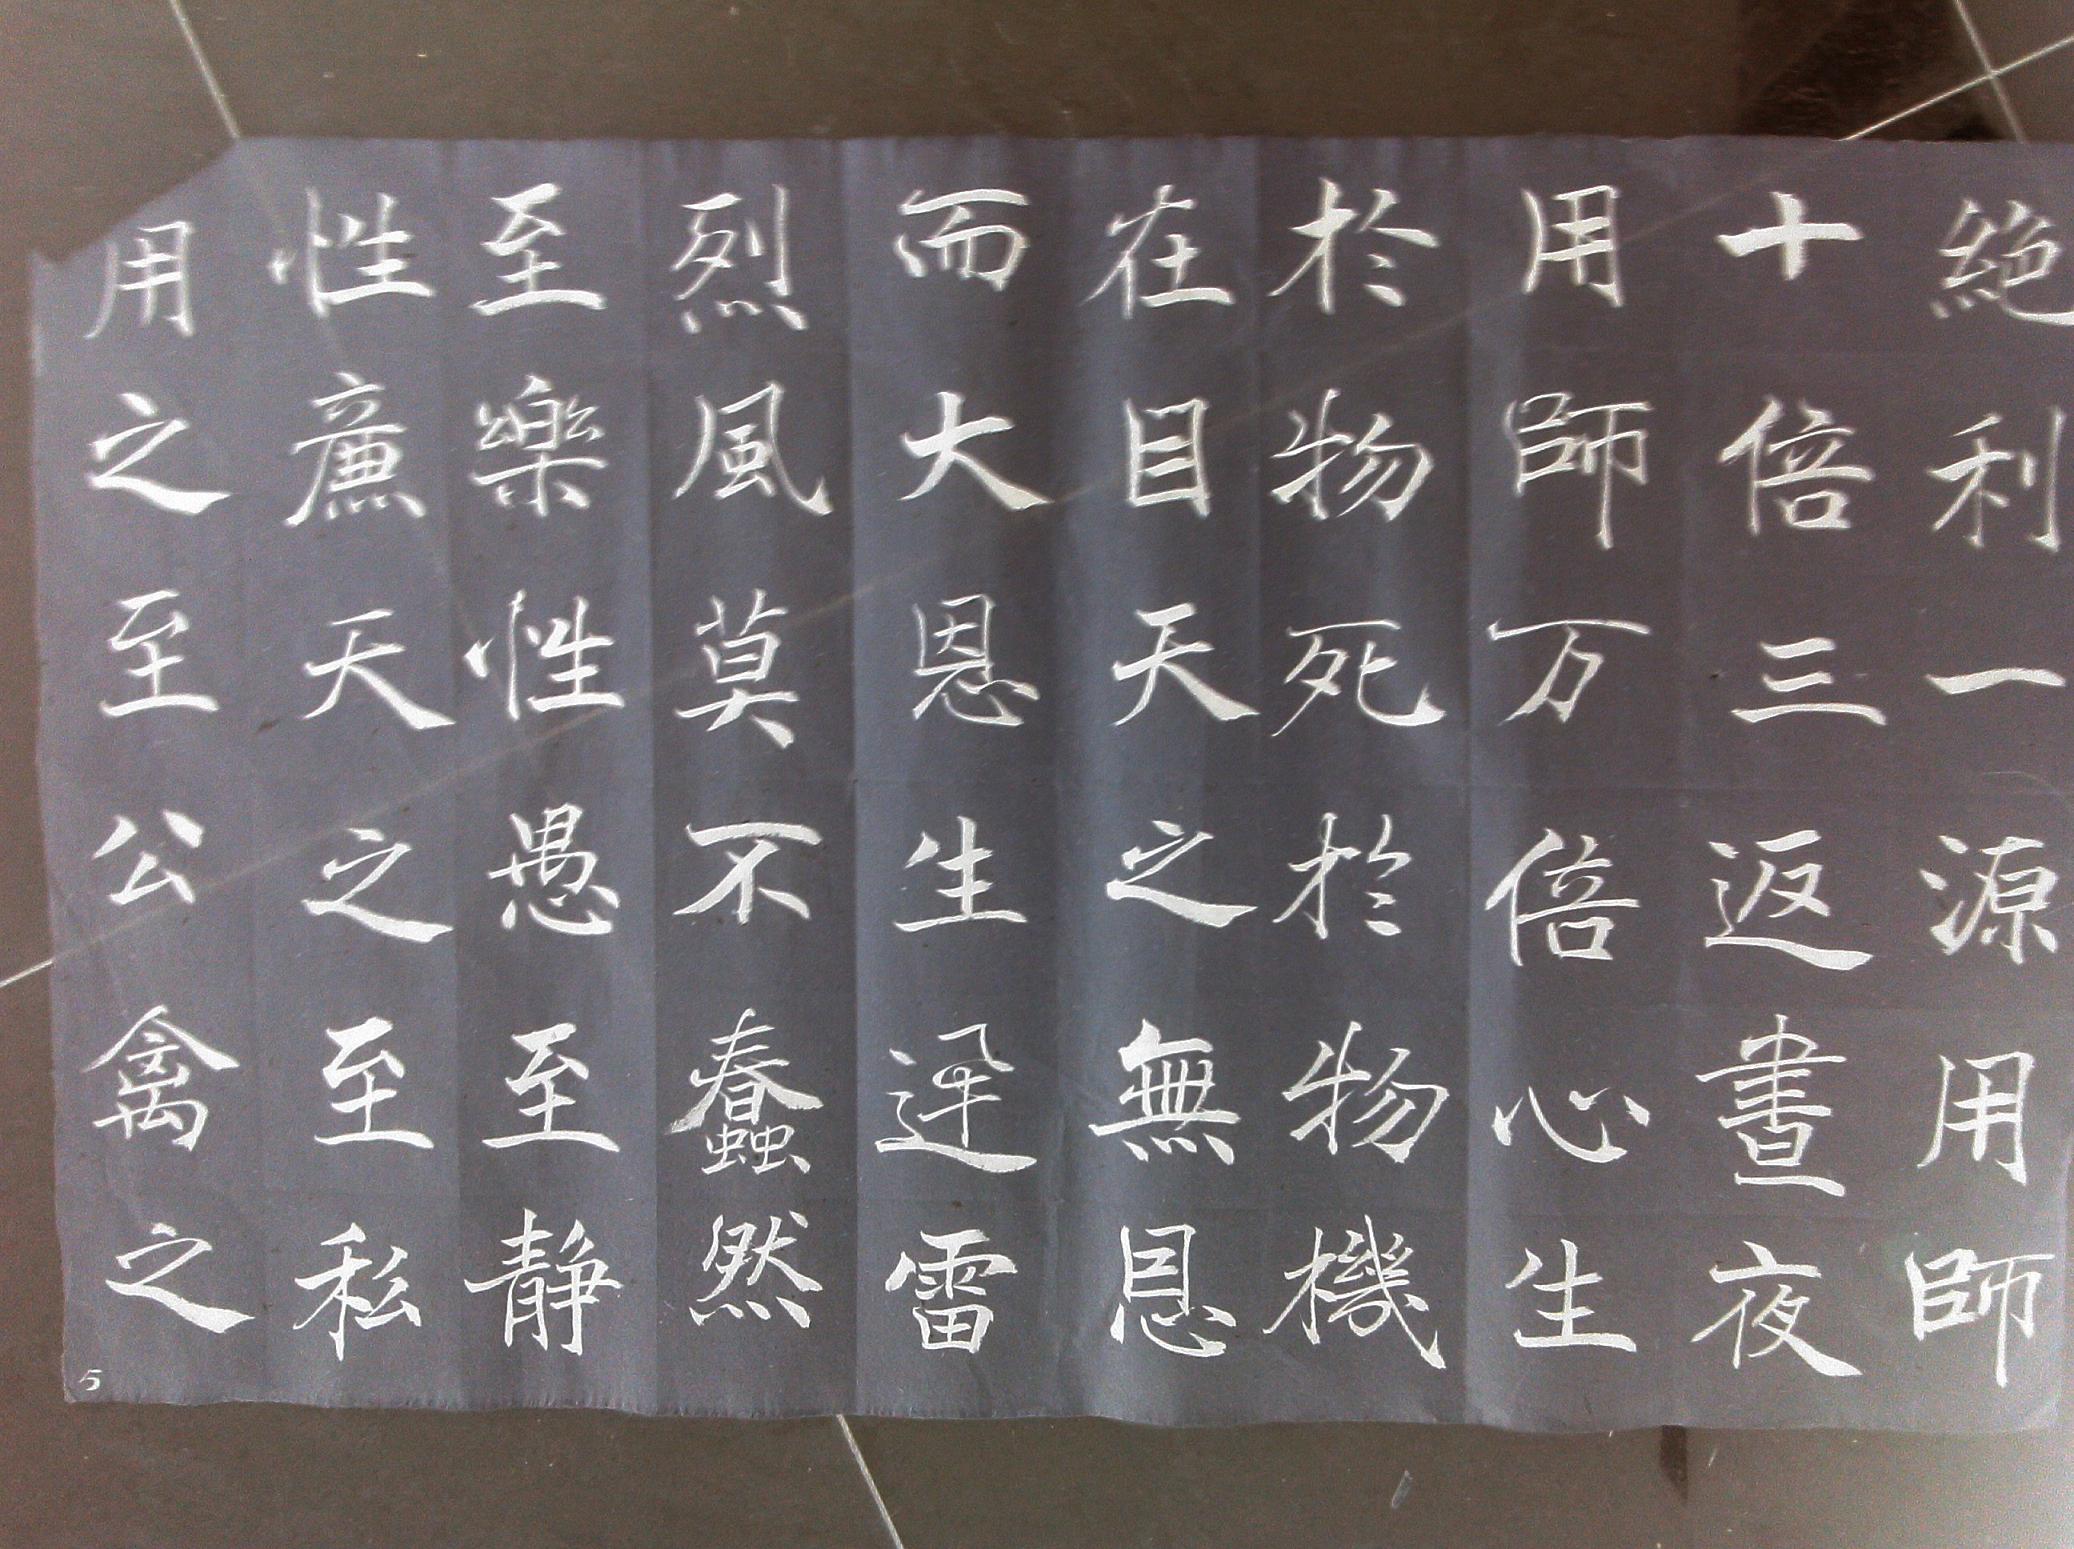 絶利一源用師
十倍三返晝夜
用師万倍心生
於物死於物機
在目天之無恩
而大恩生迅雷
烈風莫不蠢然
至樂性愚至静
性廉天之至私
用之至公禽之
5